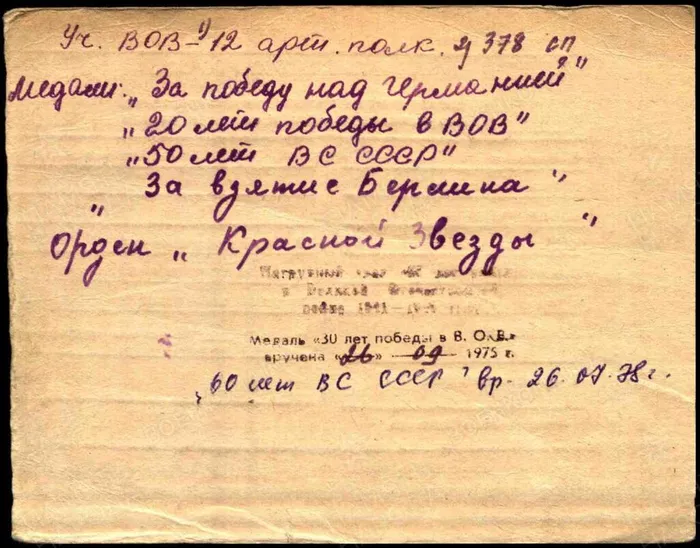 Уч. ВОВ - 1) 12 арт. полк. 2) 378 сп
Медали: „За победу над Германией"
„20 лет победы в ВОВ"
„50 лет ВС СССР"
„За взятие Берлина"
Орден „Красной Звезды"
Нагрудный знак
в Великой Отечественной
войне 1941—
Медаль «30 лет победы в В. О. В.»
вручена «26» 09 1975 г.
„60 лет ВС СССР" вр. 26.07.78 г.